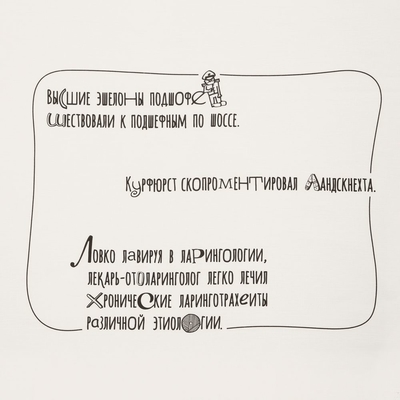 Высшие эшелоны подшофе
шествовали к подшефным по шоссе.
Курфюрст скопроментировал ландскнехта.
Ловко лавируя в ларингологии,
лекарь-отоларинголог легко лечил
хронические ларинготрахеиты
различной этиологии.